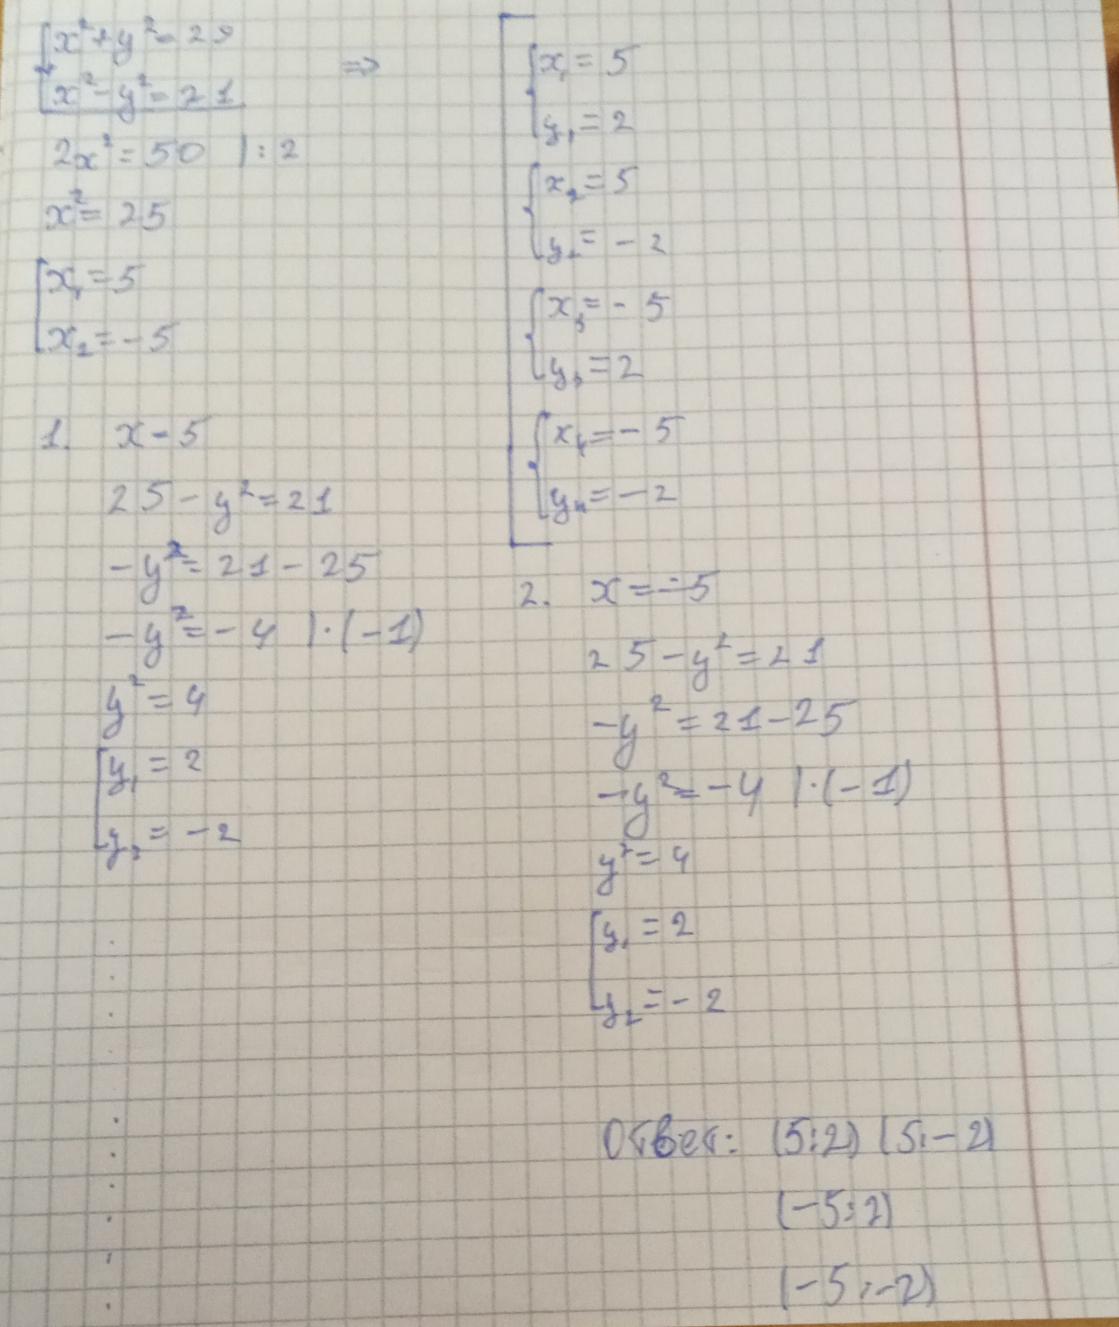 x² + y² = 29
x² - y² = 21
2x² = 50 | : 2
x² = 25
x₁ = 5
x₂ = -5
1. x = 5
25 - y² = 21
-y² = 21 - 25
-y² = -4 | · (-1)
y² = 4
y₁ = 2
y₂ = -2
⇒
x₁ = 5
y₁ = 2
x₂ = 5
y₂ = -2
x₃ = -5
y₃ = 2
x₄ = -5
y₄ = -2
2. x = -5
25 - y² = 21
-y² = 21 - 25
-y² = -4 | · (-1)
y² = 4
y₁ = 2
y₂ = -2
Ответ: (5;2) (5;-2)
(-5;2)
(-5;-2)